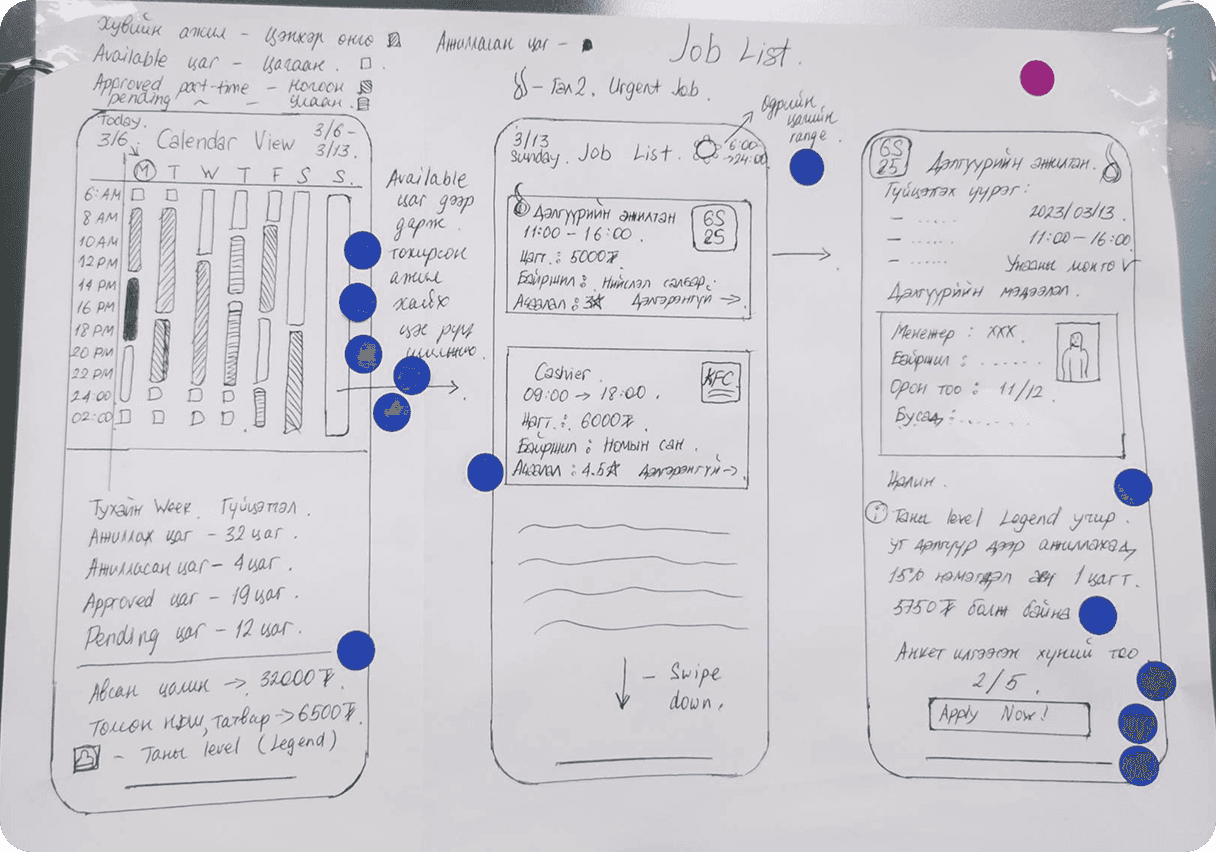 Хувийн ажил – Цэнхэр өнгө
Available цаг – Цагаан.
Approved part-time – Ногоон
pending ~ – Улаан.
Ажилласан цаг –
Job List.
– Гал 2. Urgent Job.
Өдрийн
цагийн
range.
Today.
3/6
Calendar View
3/6 –
3/13.
M T W T F S S.
6:AM
8 AM
10 AM
12 PM
14 PM
16 PM
18 PM
20 PM
22 PM
24:00
02:00
Тухайн Week. Гүйцэтгэл.
Ажиллах цаг – 32 цаг.
Ажилласан цаг – 4 цаг.
Approved цаг – 19 цаг.
Pending цаг – 12 цаг.
Авсан цалин → 32000₮.
Төлсөн НДШ, татвар → 6500₮.
– Таны level (Legend)
Available
цаг дээр
дарж.
тохирсон
ажил
хайх
цэс рүү
3/13
Sunday. Job List.
6:00
→24:00
Дэлгүүрийн ажилтан
11:00 – 16:00.
GS
25
Цагт.: 5000₮
Байршил : Нийслэл салбар.
Ачаалал : 3☆ Дэлгэрэнгүй →.
Cashier.
09:00 → 18:00.
KFC
Цагт.: 6000₮.
Байршил : Номын сан.
Ачаалал : 4.5☆ Дэлгэрэнгүй→.
– Swipe
down.
GS
25
Дэлгүүрийн ажилтан.
Гүйцэтгэх үүрэг:
– ...... 2023/03/13.
– ...... 11:00 – 16:00
– ...... Унааны мөнгө √
Дэлгүүрийн мэдээлэл.
Менежер : XXX.
Байршил : ......
Орон тоо : 11/12.
Бусад : ......
Цалин.
i Таны level Legend учир.
уг дэлгүүр дээр ажиллахад,
15% нэмэгдэл авч 1 цагт.
5750₮ болж байна
Анкет илгээсэн хүний тоо
2/5.
Apply Now!